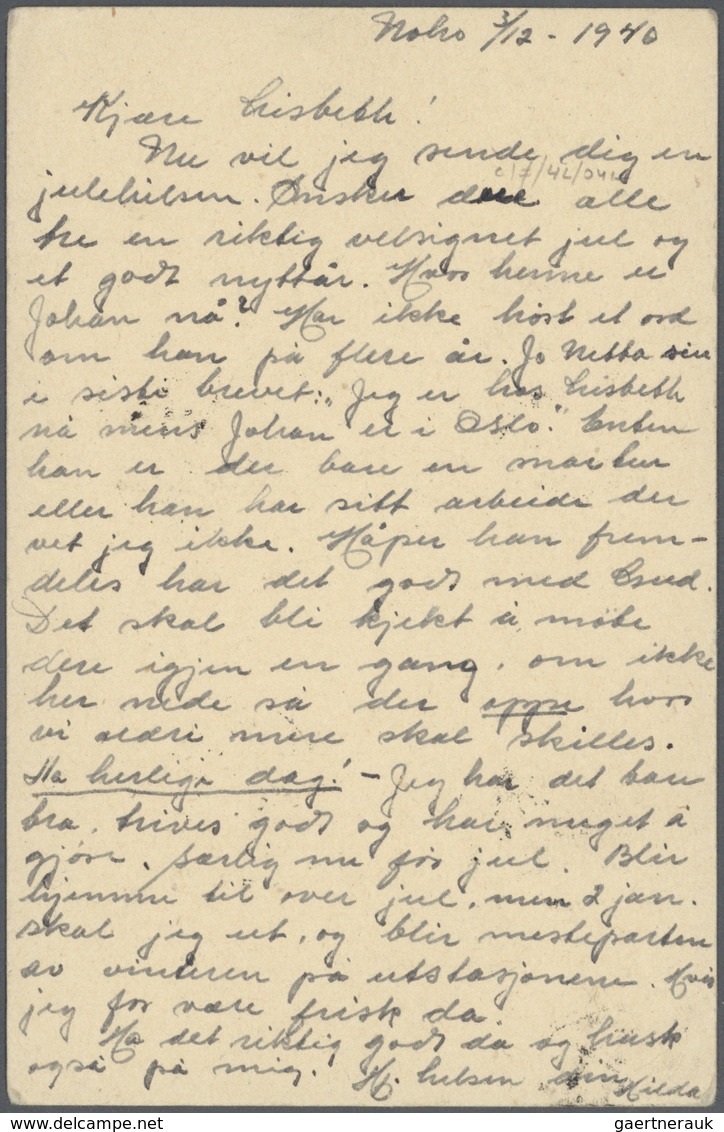 Noho 3/12 - 1940
Kjære Lisbeth!
Nu vil jeg sende dig en
c|7/42/041
julehilsen. Ønsker dere alle
tre en riktig velsignet jul og
et godt nyttår. Hvor henne er
Johan nå? Har ikke hört et ord
om han på flere år. Jo Netta
i siste brevet: "Jeg er hos Lisbeth
nå mens Johan er i Oslo." Enten
han er der bare en snartur
eller han har sitt arbeide der
vet jeg ikke. Håper han frem-
deles har det godt med Gud.
Det skal bli kjekt å möte
dere igjen en gang, om ikke
her nede så der oppe hvor
vi aldri mere skal skilles.
Ha herlige dag! - Jeg har det bare
bra, trives godt og har meget å
gjöre, særlig nu för jul. Blir
hjemme til over jul, men 2 jan.
skal jeg ut, og blir mesteparten
av vinteren på utstasjonene. Hvis
jeg før være frisk da
Ha det riktig godt da og husk
også på mig. Hj. hilsen din
Hilda
gaertnerauk